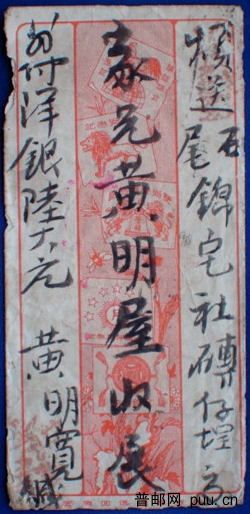 煩送石尾錦宅社磚仔埕交
家兄黃明屋收展
外付洋銀陸大元 黃明寬緘
普邮网 puu.cn